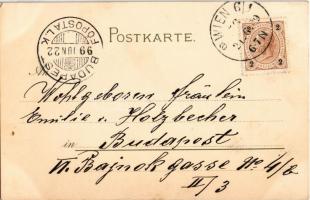 POSTKARTE.
WIEN
BUDAPEST
FŐPOSTA I.K.
99 JUN 22
2 2
2 2
Wohlgeboren Fräulein
Emilie v. Holzbecher
in Budapest
VI. Bajnokgasse No 4/b
II/3